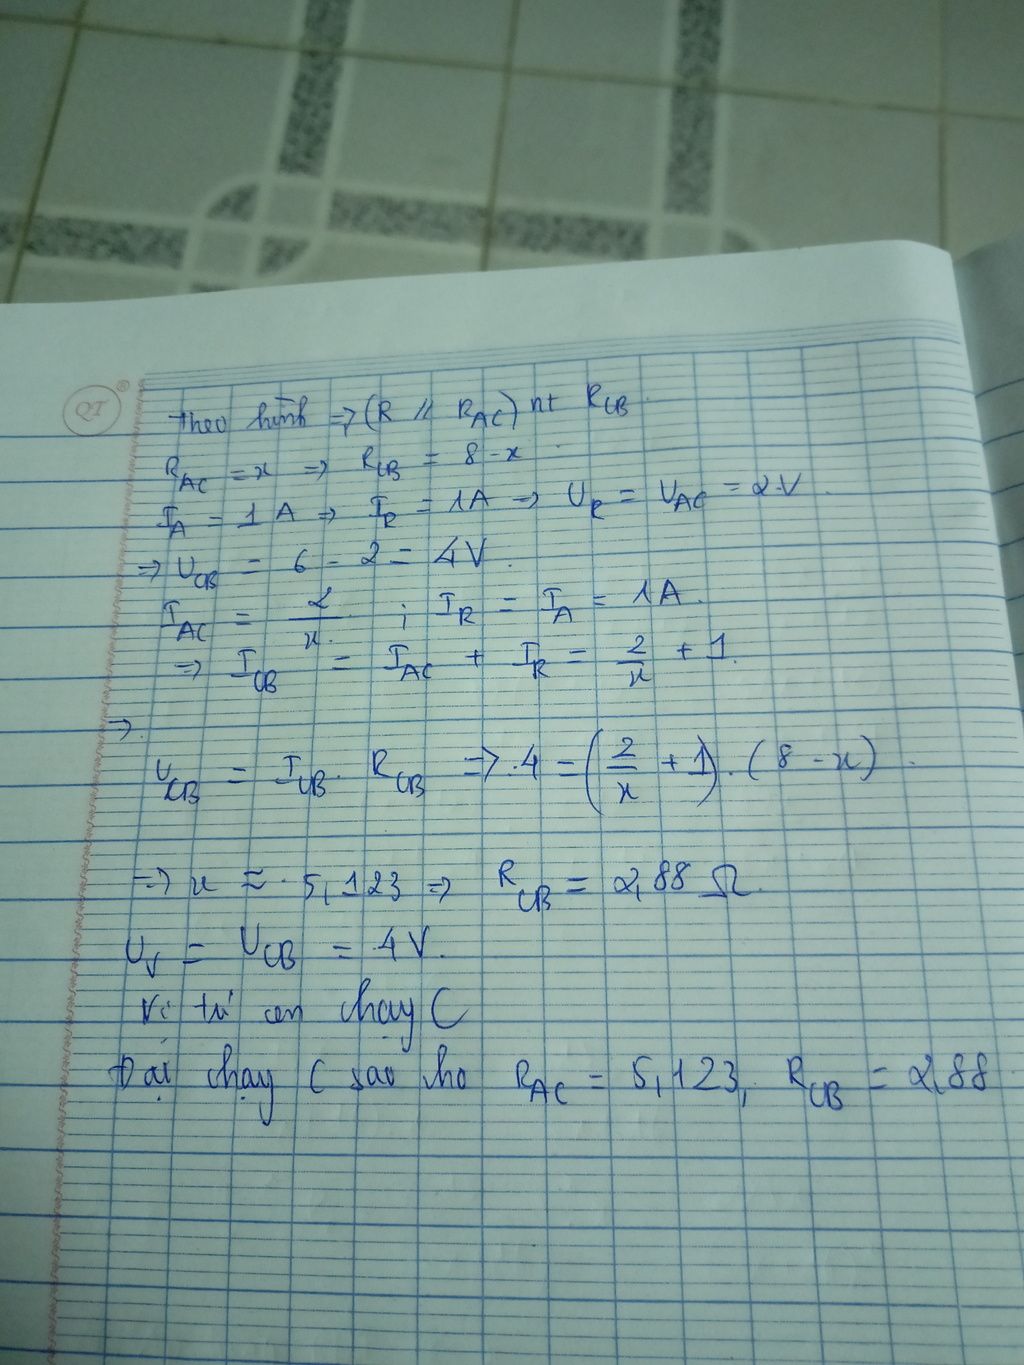 QT
Theo hình => (R // R_AC) nt R_CB
R_AC = x => R_CB = 8 - x
I_A = 1 A => I_R = 1A => U_R = U_AC = 2 V
=> U_CB = 6 - 2 = 4V.
I_AC = 2/x ; I_R = I_A = 1A.
=> I_CB = I_AC + I_R = 2/x + 1.
=>
U_CB = I_CB . R_CB => 4 = (2/x + 1) . (8 - x).
=> x ≈ 5,123 => R_CB = 2,88 Ω.
U_V = U_CB = 4V.
Vị trí con chạy C
Đặt chạy C sao ho R_AC = 5,123, R_CB = 2,88